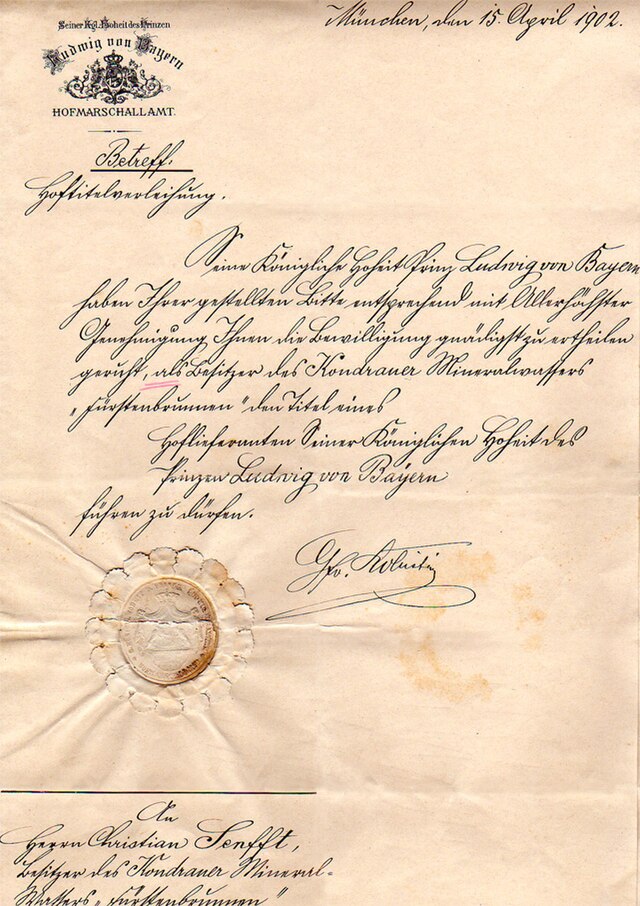 Seiner Kgl. Hoheit des Prinzen
Ludwig von Bayern
HOFMARSCHALLAMT.
München, den 15. April 1902.
Betreff:
Hoftitelverleihung.
Seine Königliche Hoheit Prinz Ludwig von Bayern
haben Ihrer gestellten Bitte entsprechend mit Allerhöchster
Genehmigung Ihnen die Bewilligung gnädigst zu ertheilen
geruht, als Besitzer des Kondrauer Mineralwassers
„Fürstenbrunnen" den Titel eines
Hoflieferanten Seiner Königlichen Hoheit des
Prinzen Ludwig von Bayern
führen zu dürfen.
An
Herrn Christian Senfft,
Besitzer des Kondrauer Mineral-
Wassers „Fürstenbrunnen"